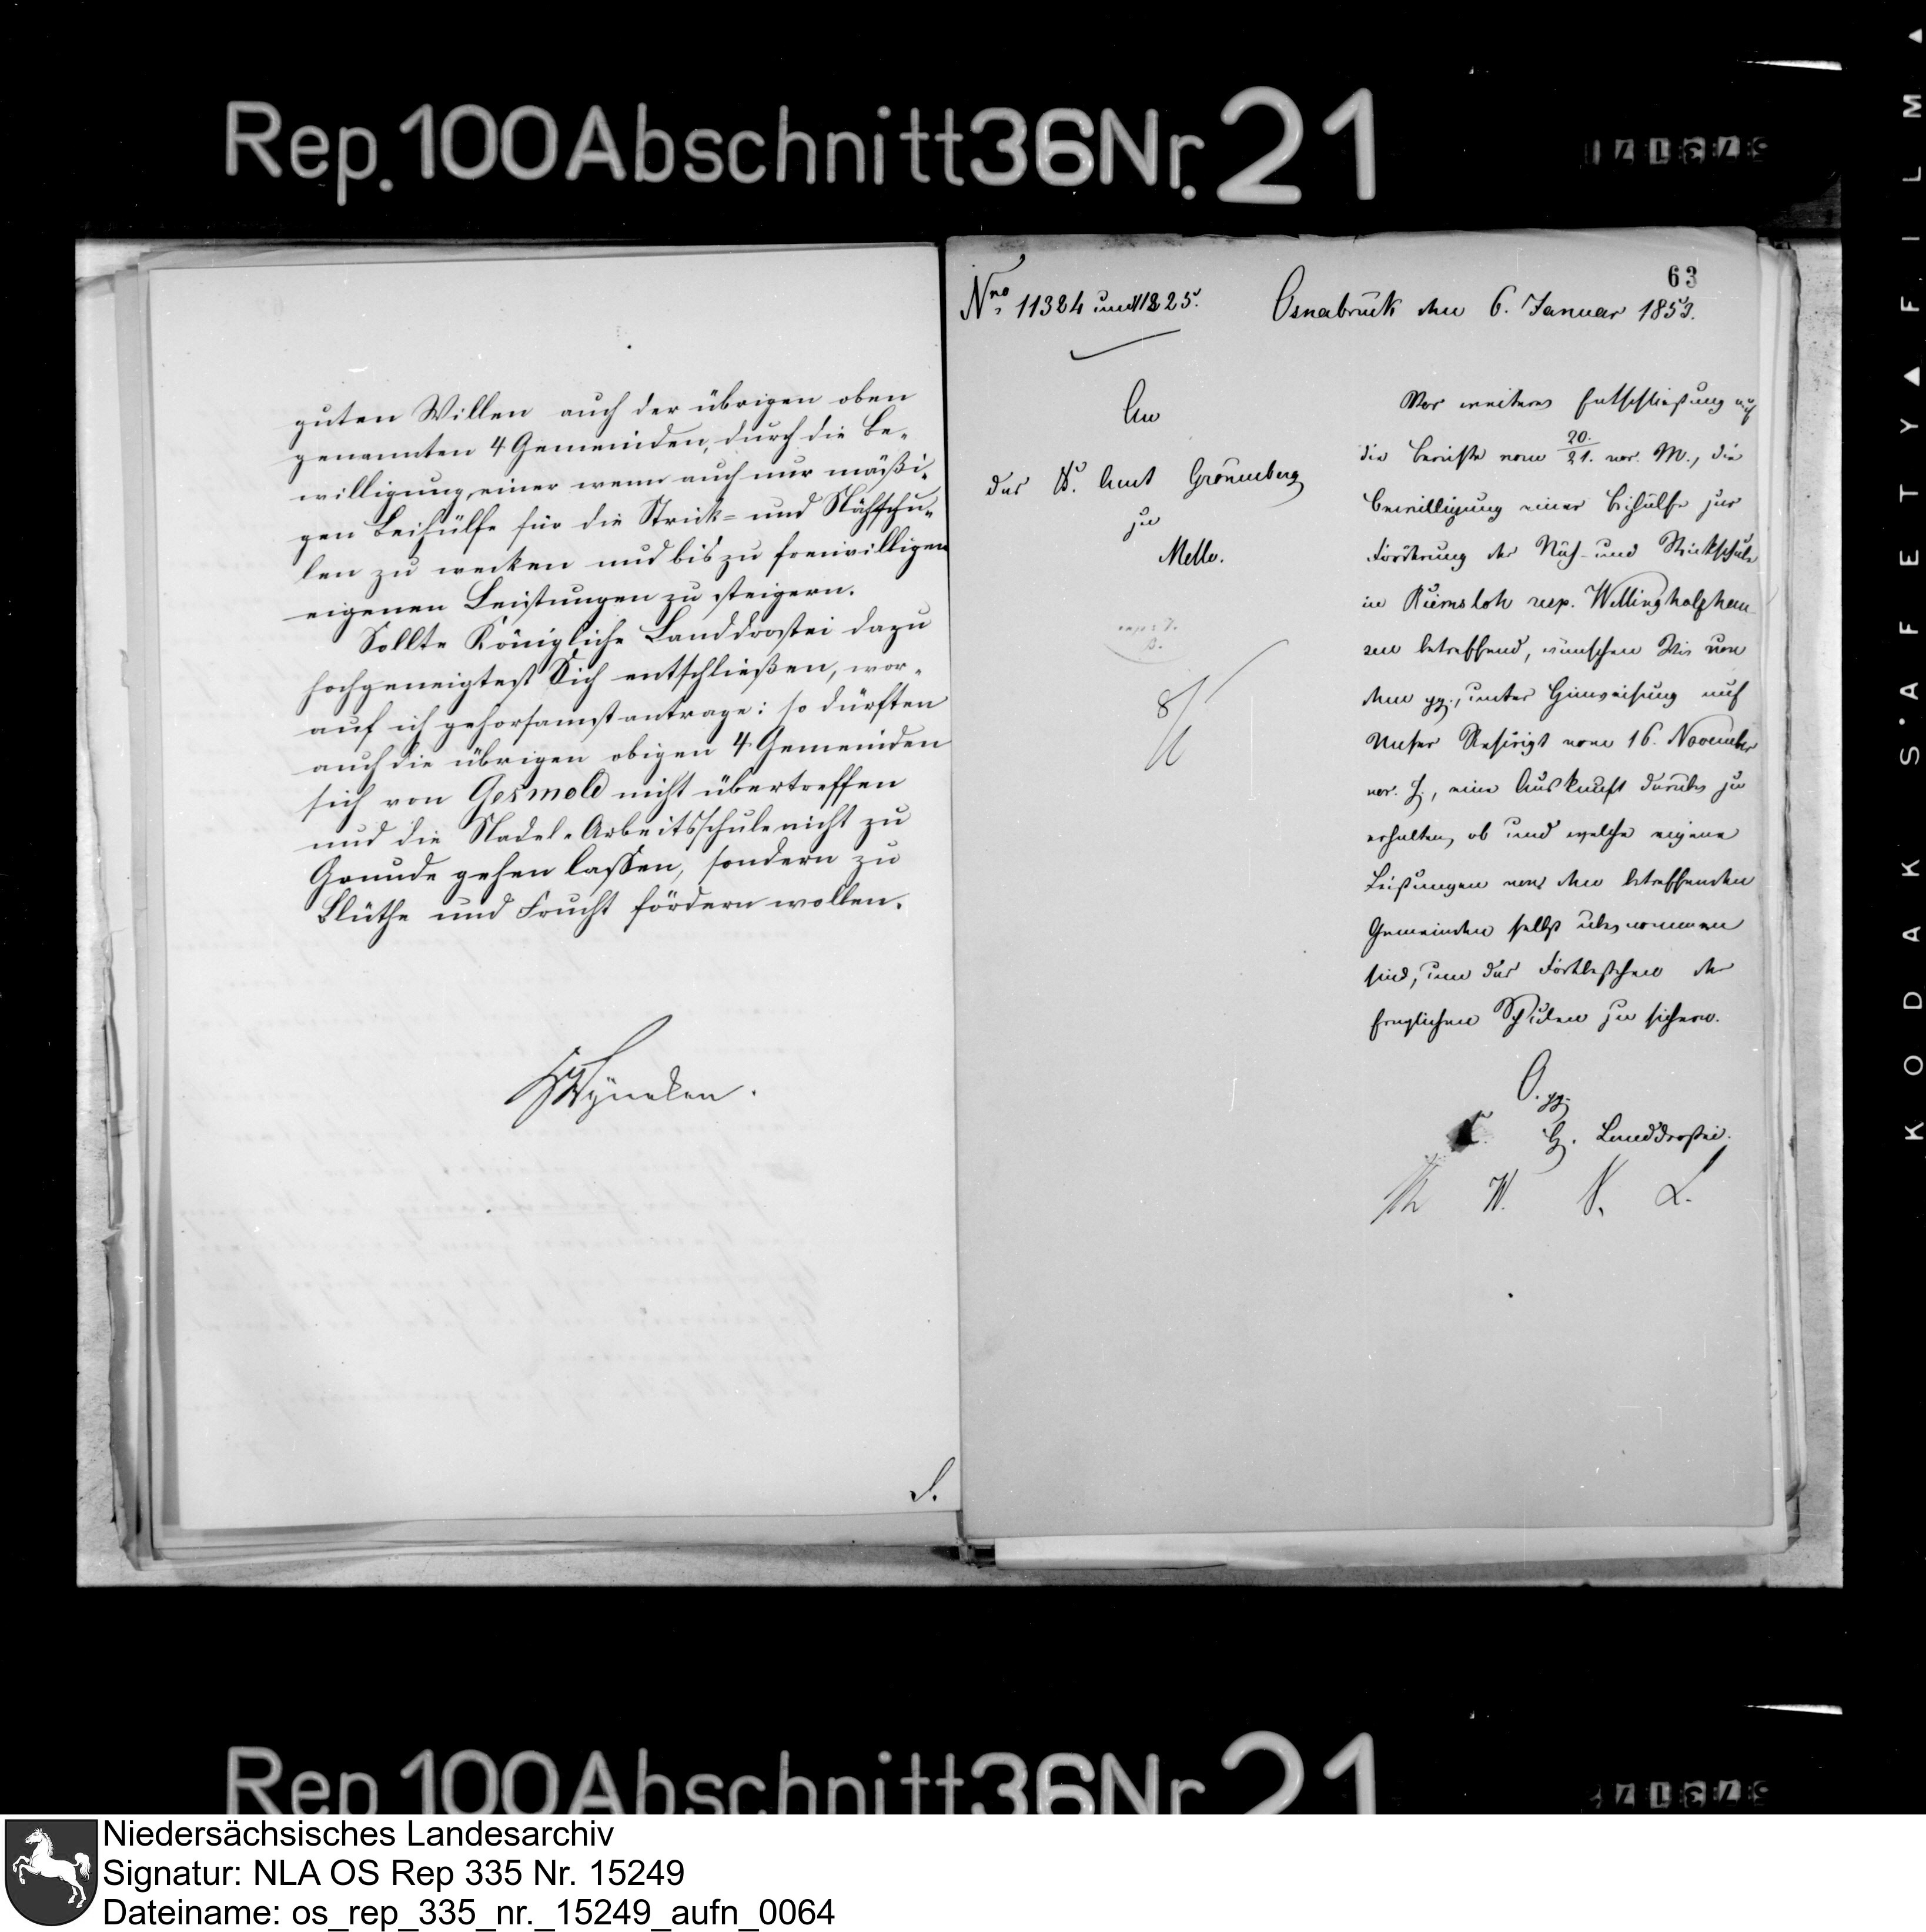 Rep. 100 Abschnitt 36 Nr. 21
guten Willen auch der übrigen oben
genannten 4 Gemeinden, durch die Be-
willigung einer wenn auch nur mäßi-
gen Beihülfe für die Strick- und Nähschu-
len zu wecken und bis zu freiwilligen
eigenen Leistungen zu steigern.
Sollte Königliche Landdrostei dazu
hochgeneigtest Sich entschließen, wor-
auf ich gehorsamst antrage: so dürften
auch die übrigen obigen 4 Gemeinden
sich von Gesmold nicht übertreffen
und die Nadel-Arbeitsschule nicht zu
Grunde gehen lassen, sondern zu
Blüthe und Frucht fördern wollen.
Wyneken.
63
Nro. 11324 und 11325.
Osnabrück den 6. Januar 1853.
An
das K. Amt Grönenberg
zu
Melle.
8/1
Vor weiterer Entschließung auf
die Berichte vom 20./21. vor. M., die
Bewilligung einer Beihülfe zur
Förderung der Näh- und Strickschule
in Riemsloh resp. Wellingholzhau-
sen betreffend, wünschen Wir von
dem pp., unter Hinweisung auf
Unser Rescript vom 16. November
vor. J., eine Auskunft darüber zu
erhalten, ob und welche eigene
Leistungen von den betreffenden
Gemeinden selbst übernommen
sind, um das Fortbestehen der
fraglichen Schulen zu sichern.
O. pp.
K. H. Landdrostei.
W. N. L.
S.
KODAK S'AFETY▲FILM▲
Rep 100 Abschnitt 36 Nr 21
Niedersächsisches Landesarchiv
Signatur: NLA OS Rep 335 Nr. 15249
Dateiname: os_rep_335_nr._15249_aufn_0064